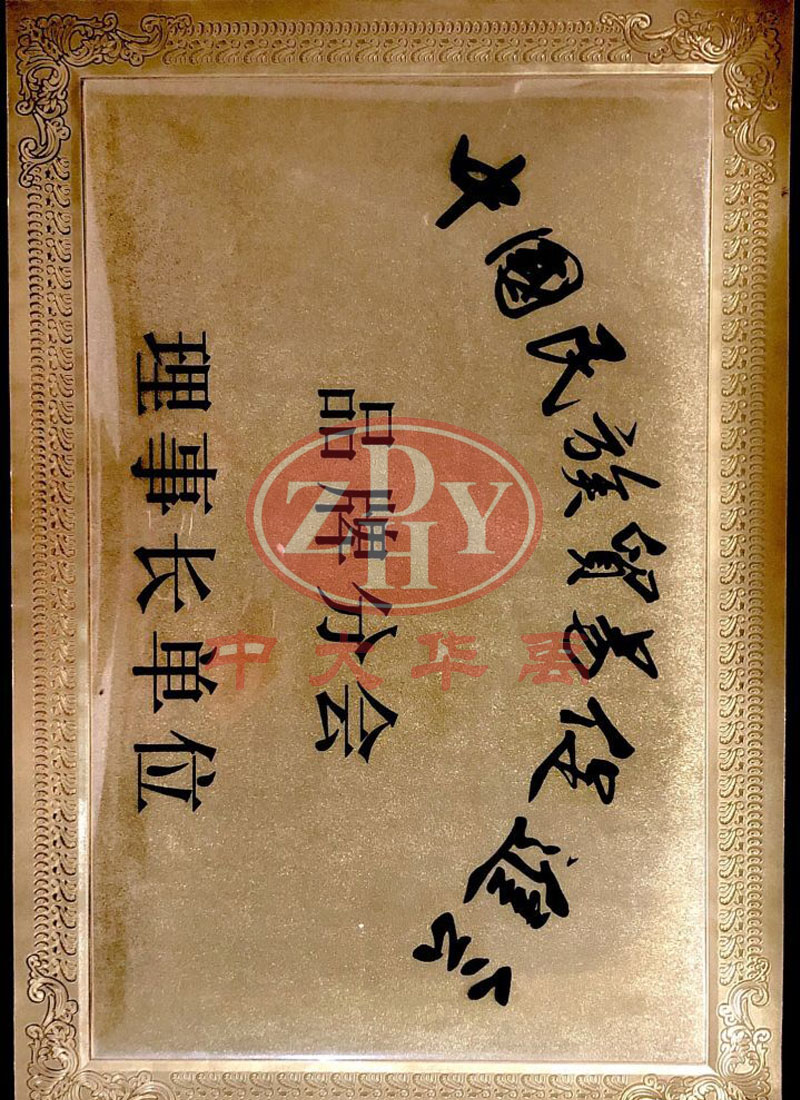 中國民族貿易促進会
品牌分会
理事长单位
ZDHY
中大华离